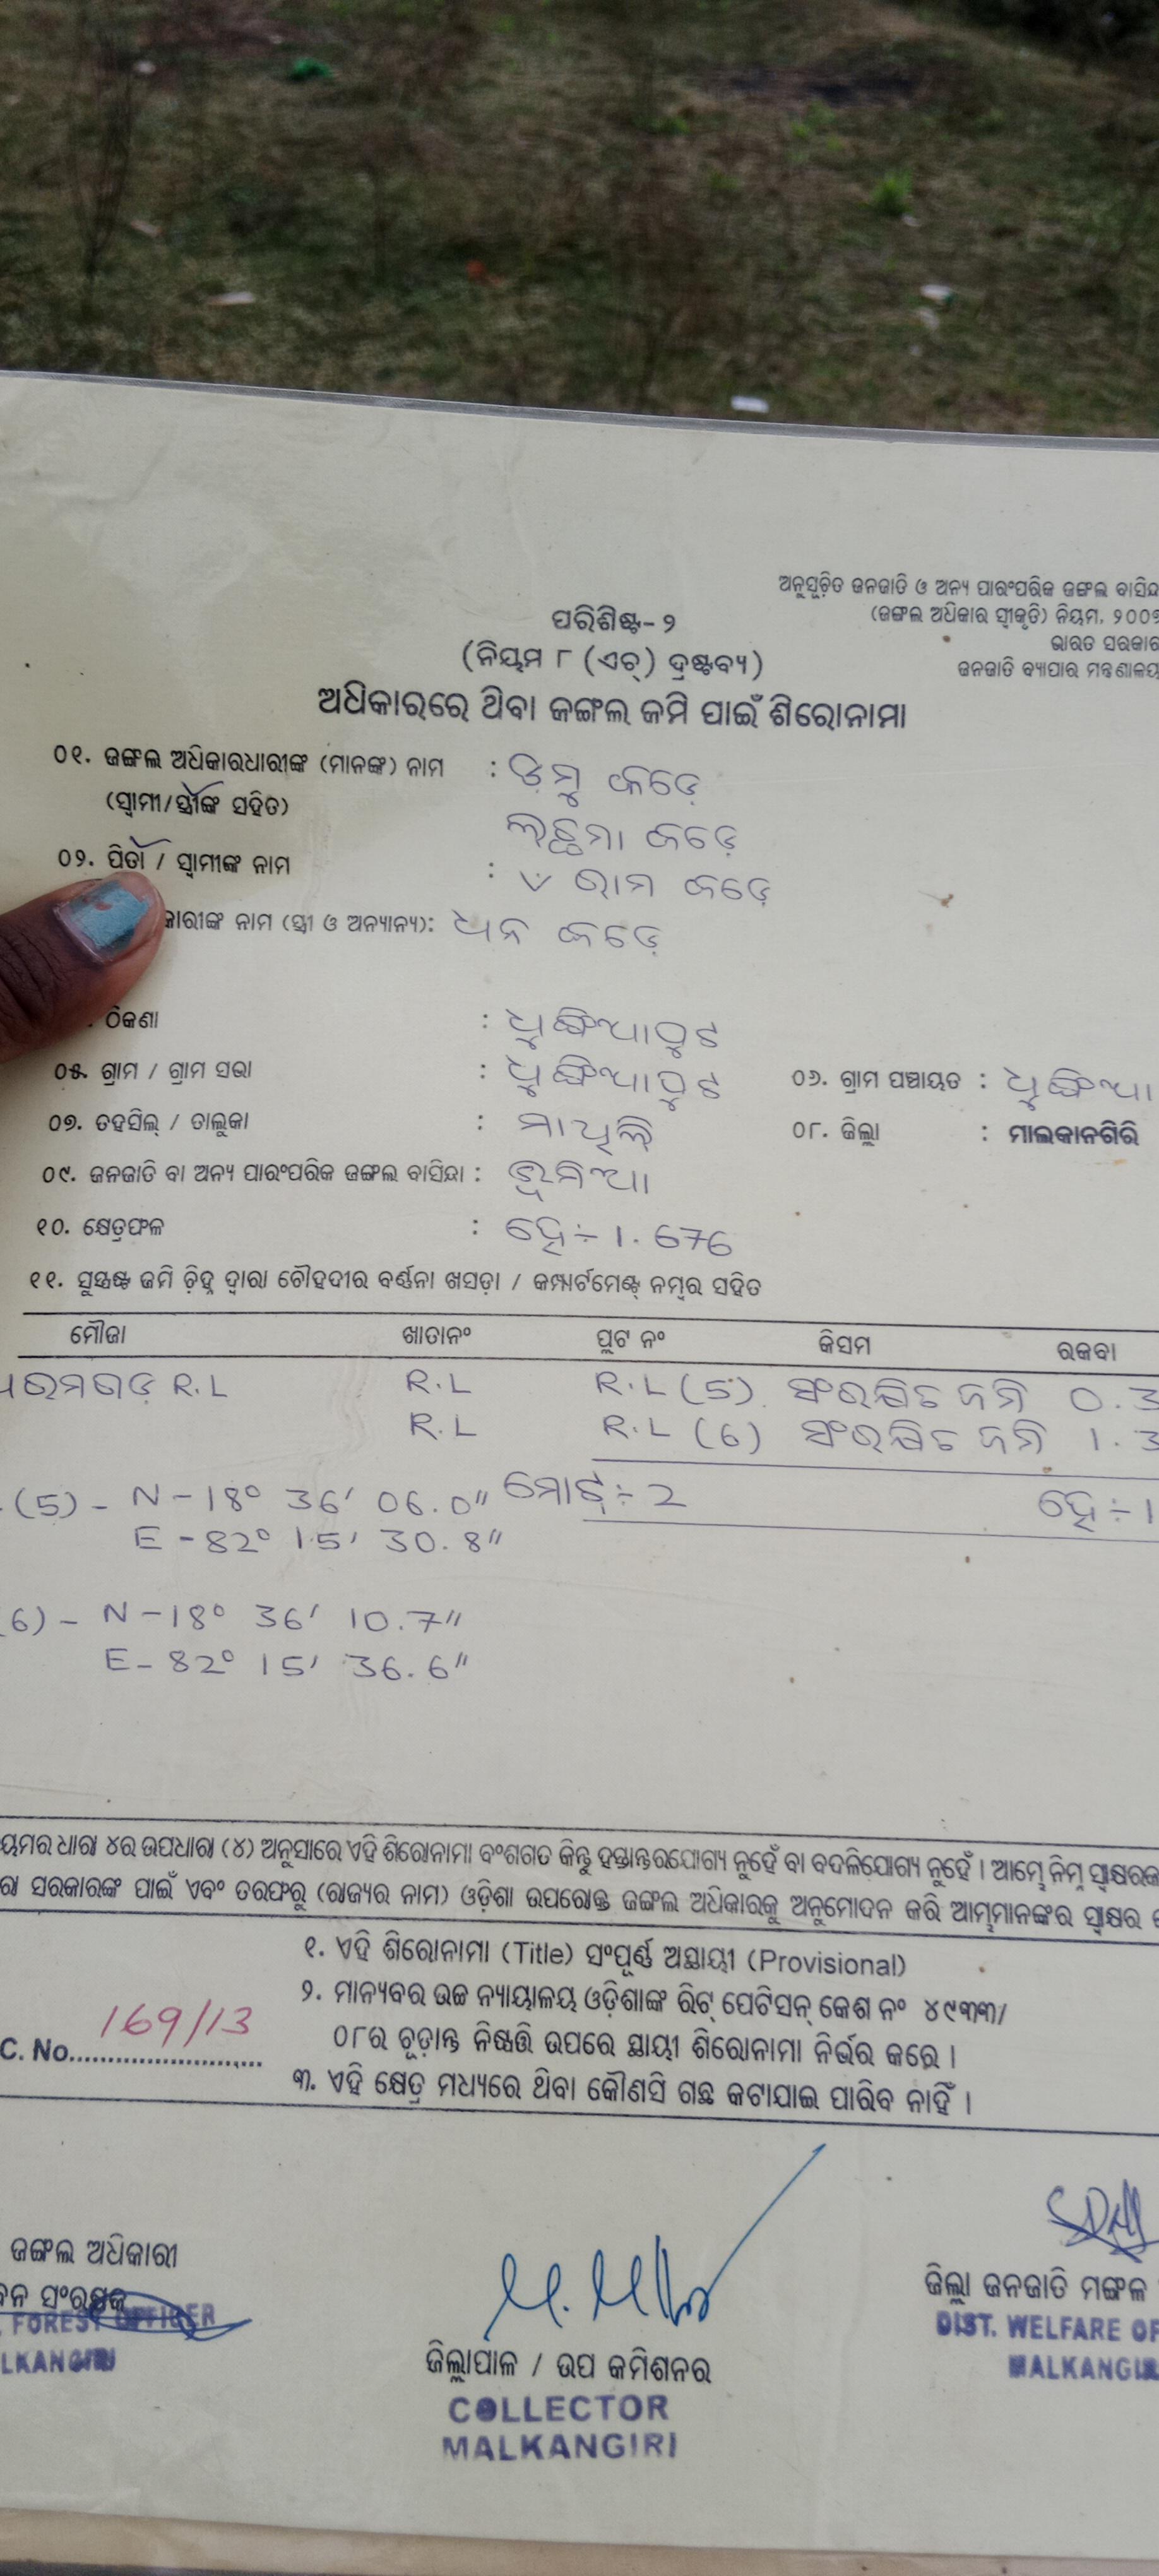 ଅନୁସୂଚିତ ଜନଜାତି ଓ ଅନ୍ୟ ପାରଂପରିକ ଜଙ୍ଗଲ ବାସିନ୍ଦା
(ଜଙ୍ଗଲ ଅଧିକାର ସ୍ୱୀକୃତି) ନିୟମ, ୨୦୦୭
ଭାରତ ସରକାର
ଜନଜାତି ବ୍ୟାପାର ମନ୍ତ୍ରଣାଳୟ
ପରିଶିଷ୍ଟ- ୨
(ନିୟମ ୮ (ଏଚ୍) ଦ୍ରଷ୍ଟବ୍ୟ)
ଅଧିକାରରେ ଥିବା ଜଙ୍ଗଲ ଜମି ପାଇଁ ଶିରୋନାମା
୦୧. ଜଙ୍ଗଲ ଅଧିକାରଧାରୀଙ୍କ (ମାନଙ୍କ) ନାମ : ଡ଼ମୁ କଡ଼େ
(ସ୍ୱାମୀ/ସ୍ତ୍ରୀଙ୍କ ସହିତ) ଲଛମା କଡ଼େ
୦୨. ପିତା / ସ୍ୱାମୀଙ୍କ ନାମ : ରାମ କଡ଼େ
କାରୀଙ୍କ ନାମ (ସ୍ତ୍ରୀ ଓ ଅନ୍ୟାନ୍ୟ): ଧନ କଡ଼େ
ଠିକଣା :
୦୫. ଗ୍ରାମ / ଗ୍ରାମ ସଭା : ୦୬. ଗ୍ରାମ ପଞ୍ଚାୟତ :
୦୭. ତହସିଲ୍ / ତାଲୁକା : ମାଥିଲି ୦୮. ଜିଲ୍ଲା : ମାଲକାନଗିରି
୦୯. ଜନଜାତି ବା ଅନ୍ୟ ପାରଂପରିକ ଜଙ୍ଗଲ ବାସିନ୍ଦା : ଭୂମିଆ
୧୦. କ୍ଷେତ୍ରଫଳ : ହେ÷ 1.676
୧୧. ସୁସ୍ପଷ୍ଟ ଜମି ଚିହ୍ନ ଦ୍ୱାରା ଚୌହଦୀର ବର୍ଣ୍ଣନା ଖସଡ଼ା / କମ୍ପାର୍ଟମେଣ୍ଟ୍ ନମ୍ବର ସହିତ
ମୌଜା ଖାତାନଂ ପ୍ଲଟ ନଂ କିସମ ରକବା
R.L R.L R.L (5) ସଂରକ୍ଷିତ ଜମି 0.3
R.L R.L (6) ସଂରକ୍ଷିତ ଜମି 1.3
(5) - N - 18° 36' 06.0" ମୋଟ୍ ÷ 2 ହେ ÷ 1
E - 82° 15' 30.8"
6) - N - 18° 36' 10.7"
E - 82° 15' 36.6"
ୟମର ଧାରା ୪ର ଉପଧାରା (୪) ଅନୁସାରେ ଏହି ଶିରୋନାମା ବଂଶଗତ କିନ୍ତୁ ହସ୍ତାନ୍ତରଯୋଗ୍ୟ ନୁହେଁ ବା ବଦଳିଯୋଗ୍ୟ ନୁହେଁ । ଆମ୍ଭେ ନିମ୍ନ ସ୍ୱାକ୍ଷରକା
ରା ସରକାରଙ୍କ ପାଇଁ ଏବଂ ତରଫରୁ (ରାଜ୍ୟର ନାମ) ଓଡ଼ିଶା ଉପରୋକ୍ତ ଜଙ୍ଗଲ ଅଧିକାରକୁ ଅନୁମୋଦନ କରି ଆମ୍ଭମାନଙ୍କର ସ୍ୱାକ୍ଷର
୧. ଏହି ଶିରୋନାମା (Title) ସଂପୂର୍ଣ୍ଣ ଅସ୍ଥାୟୀ (Provisional)
୨. ମାନ୍ୟବର ଉଚ୍ଚ ନ୍ୟାୟାଳୟ ଓଡ଼ିଶାଙ୍କ ରିଟ୍ ପେଟିସନ୍ କେଶ ନଂ ୪୯୩୩/
C. No. 169/13 ୦୮ର ଚୂଡ଼ାନ୍ତ ନିଷ୍ପତ୍ତି ଉପରେ ସ୍ଥାୟୀ ଶିରୋନାମା ନିର୍ଭର କରେ ।
୩. ଏହି କ୍ଷେତ୍ର ମଧ୍ୟରେ ଥିବା କୌଣସି ଗଛ କଟାଯାଇ ପାରିବ ନାହିଁ ।
ଜଙ୍ଗଲ ଅଧିକାରୀ
ବନ ସଂରକ୍ଷକ
FOREST OFFICER
LKANGIRI
ଜିଲ୍ଲାପାଳ / ଉପ କମିଶନର
COLLECTOR
MALKANGIRI
ଜିଲ୍ଲା ଜନଜାତି ମଙ୍ଗଳ
DIST. WELFARE OF
MALKANGIR